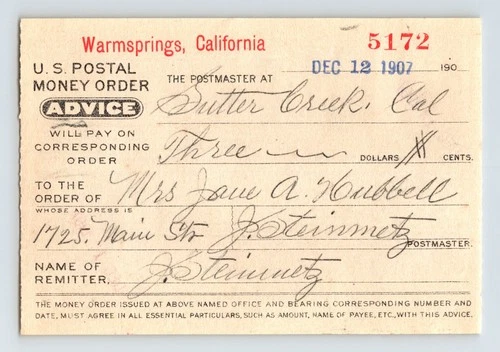 Warmsprings, California 5172
U.S. POSTAL
MONEY ORDER
ADVICE
THE POSTMASTER AT DEC 12 1907 190
Sutter Creek, Cal
WILL PAY ON
CORRESPONDING
ORDER
Three DOLLARS CENTS.
TO THE
ORDER OF Mrs Jane A. Hubbell
WHOSE ADDRESS IS
1725. Main Str J. Steinmetz POSTMASTER.
NAME OF
REMITTER, J. Steinmetz
THE MONEY ORDER ISSUED AT ABOVE NAMED OFFICE AND BEARING CORRESPONDING NUMBER AND
DATE, MUST AGREE IN ALL ESSENTIAL PARTICULARS, SUCH AS AMOUNT, NAME OF PAYEE, ETC., WITH THIS ADVICE.